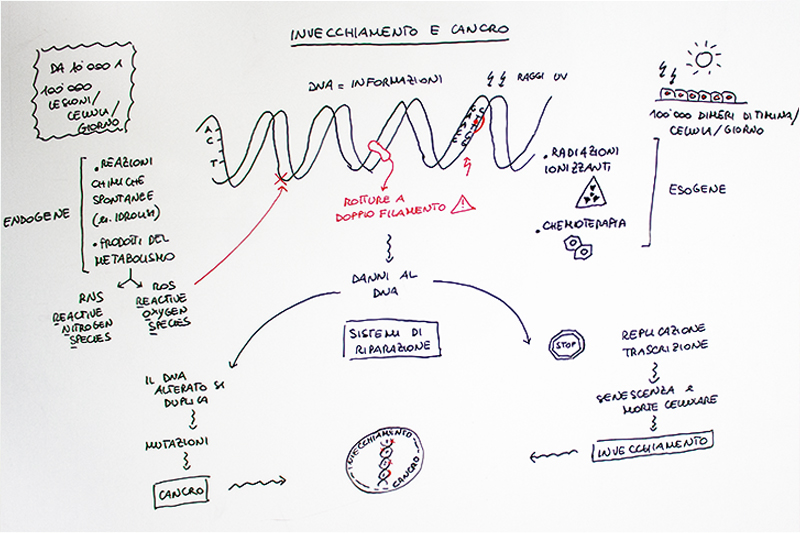 INVECCHIAMENTO E CANCRO
DA 10'000 A
100'000
LESIONI/
CELLULA/
GIORNO
DNA = INFORMAZIONI
RAGGI UV
100'000 DIMERI DI TIMINA/
CELLULA/GIORNO
A
C
T
ENDOGENE
• REAZIONI
CHIMICHE
SPONTANEE
(es. IDROLISI)
• PRODOTTI DEL
METABOLISMO
RNS
REACTIVE
NITROGEN
SPECIES
ROS
REACTIVE
OXYGEN
SPECIES
ROTTURE A
DOPPIO FILAMENTO
!
• RADIAZIONI
IONIZZANTI
• CHEMIOTERAPIA
ESOGENE
DANNI AL
DNA
SISTEMI DI
RIPARAZIONE
IL DNA
ALTERATO SI
DUPLICA
MUTAZIONI
CANCRO
STOP
REPLICAZIONE
TRASCRIZIONE
SENESCENZA e
MORTE CELLULARE
INVECCHIAMENTO
INVECCHIAMENTO
CANCRO